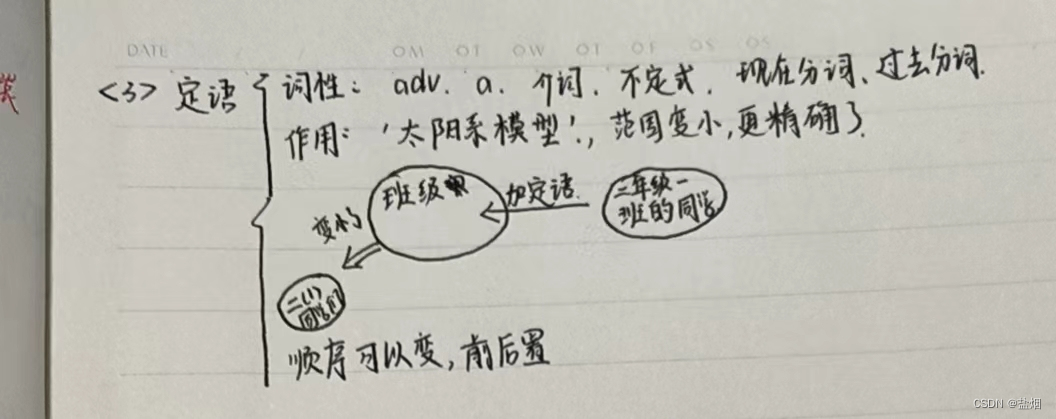 DATE / / OM OT OW OT OF OS OS
<3> 定语
词性: adv. a. 介词、不定式、现在分词、过去分词.
作用: '太阳系模型', 范围变小,更精确了.
班级
加定语.
二年级一
班的同学
变小了
二(1)
同学们
顺序可以变,前后置
CSDN @盐烟